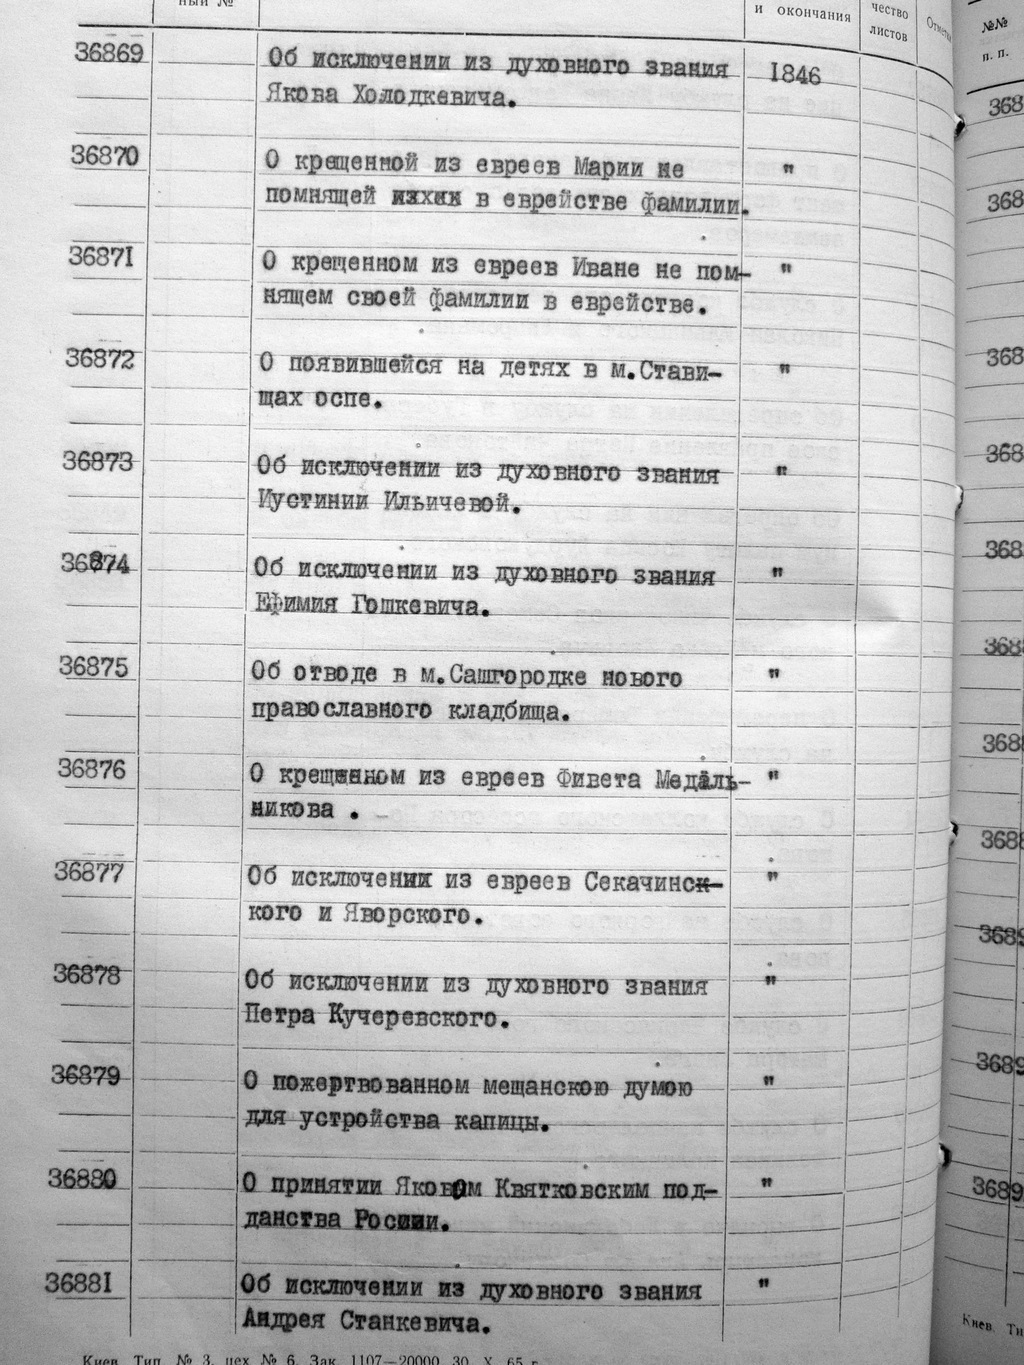 ный №
и окончания
чество
листов
Отметки
№№
п. п.
36869 Об исключении из духовного звания 1846
Якова Холодкевича.
36870 О крещенной из евреев Марии не "
помнящей в еврействе фамилии.
36871 О крещенном из евреев Иване не пом- "
нящем своей фамилии в еврействе.
36872 О появившейся на детях в м.Стави- "
щах оспе.
36873 Об исключении из духовного звания "
Иустинии Ильичевой.
36874 Об исключении из духовного звания "
Ефимия Гошкевича.
36875 Об отводе в м.Сашгородке нового "
православного кладбища.
36876 О крещенном из евреев Фивета Медаль- "
никова .
36877 Об исключении из евреев Секачинск- "
кого и Яворского.
36878 Об исключении из духовного звания "
Петра Кучеревского.
36879 О пожертвованном мещанскою думою "
для устройства капицы.
36880 О принятии Яковом Квятковским под- "
данства России.
36881 Об исключении из духовного звания "
Андрея Станкевича.
Киев. Тип. № 3, цех № 6. Зак. 1107—20000. 30. X. 65 г.
368
368
368
368
368
368
368
368
3689
3689
3689
Киев. Ти